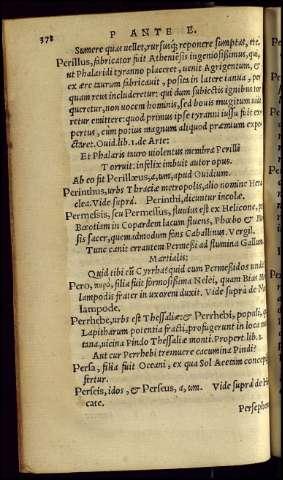 378 P ANTE E.
Sumere quias uellet, rursusq; reponere sumptas, etc.
Perillus, fabricator fuit Atheniẽsis ingeniosißimus, qui,
ut Phalaridi tyranno placeret, iuenit Agrigentum, &
ex ære taurum fabricauit, posita in latere ianua, per
quam reus includeretur: qui dum subiectis ignibus tor
queretur, non uocem hominis, sed bouis mugitum uide
retur emittere: quod primus ipse tyranni iussu fuit ex-
pertus, cùm potius magnum aliquod præmium expe
ctaret. Ouid. lib. 1. de Arte:
Et Phalaris tauro uiolentus membra Perilli
Torruit: infelix imbuit autor opus.
Ab eo fit Perillæus, a, um, apud Ouidium.
Perinthus, urbs Thraciæ metropolis, alio nomine Hera
clea. Vide suprà. Perinthi, dicuntur incolæ.
Permeßis, seu Permeßius, fluuius est ex Helicone, per
Bœotiam in Copaidem lacum fluens, Phœbo & Mu
sis sacer, quemadmodum fons Caballinus. Vergil.
Tunc canit errantem Permeßi ad flumina Gallum.
Martialis:
Quid tibi cũ Cyrrha: quid cum Permeßidos unda?
Pero, πηρὼ, filia fuit formosißima Nelei, quam Bias Me
lampodis frater in uxorem duxit. Vide supra de Me
lampode.
Perrhebe, urbs est Thessaliæ: & Perrhebi, populi, qui
Lapitharum potentia fracti, profugerunt in loca mon
tana, uicina Pindo Thessaliæ monti. Propert. lib. 3.
Aut cur Perrhebi tremuere cacumina Pindi?
Persa, filia fuit Oceani, ex qua Sol Aeetim concepisse
fertur.
Perseis, idos, & Perseus, a, um. Vide suprà de He
cate.
Persephone